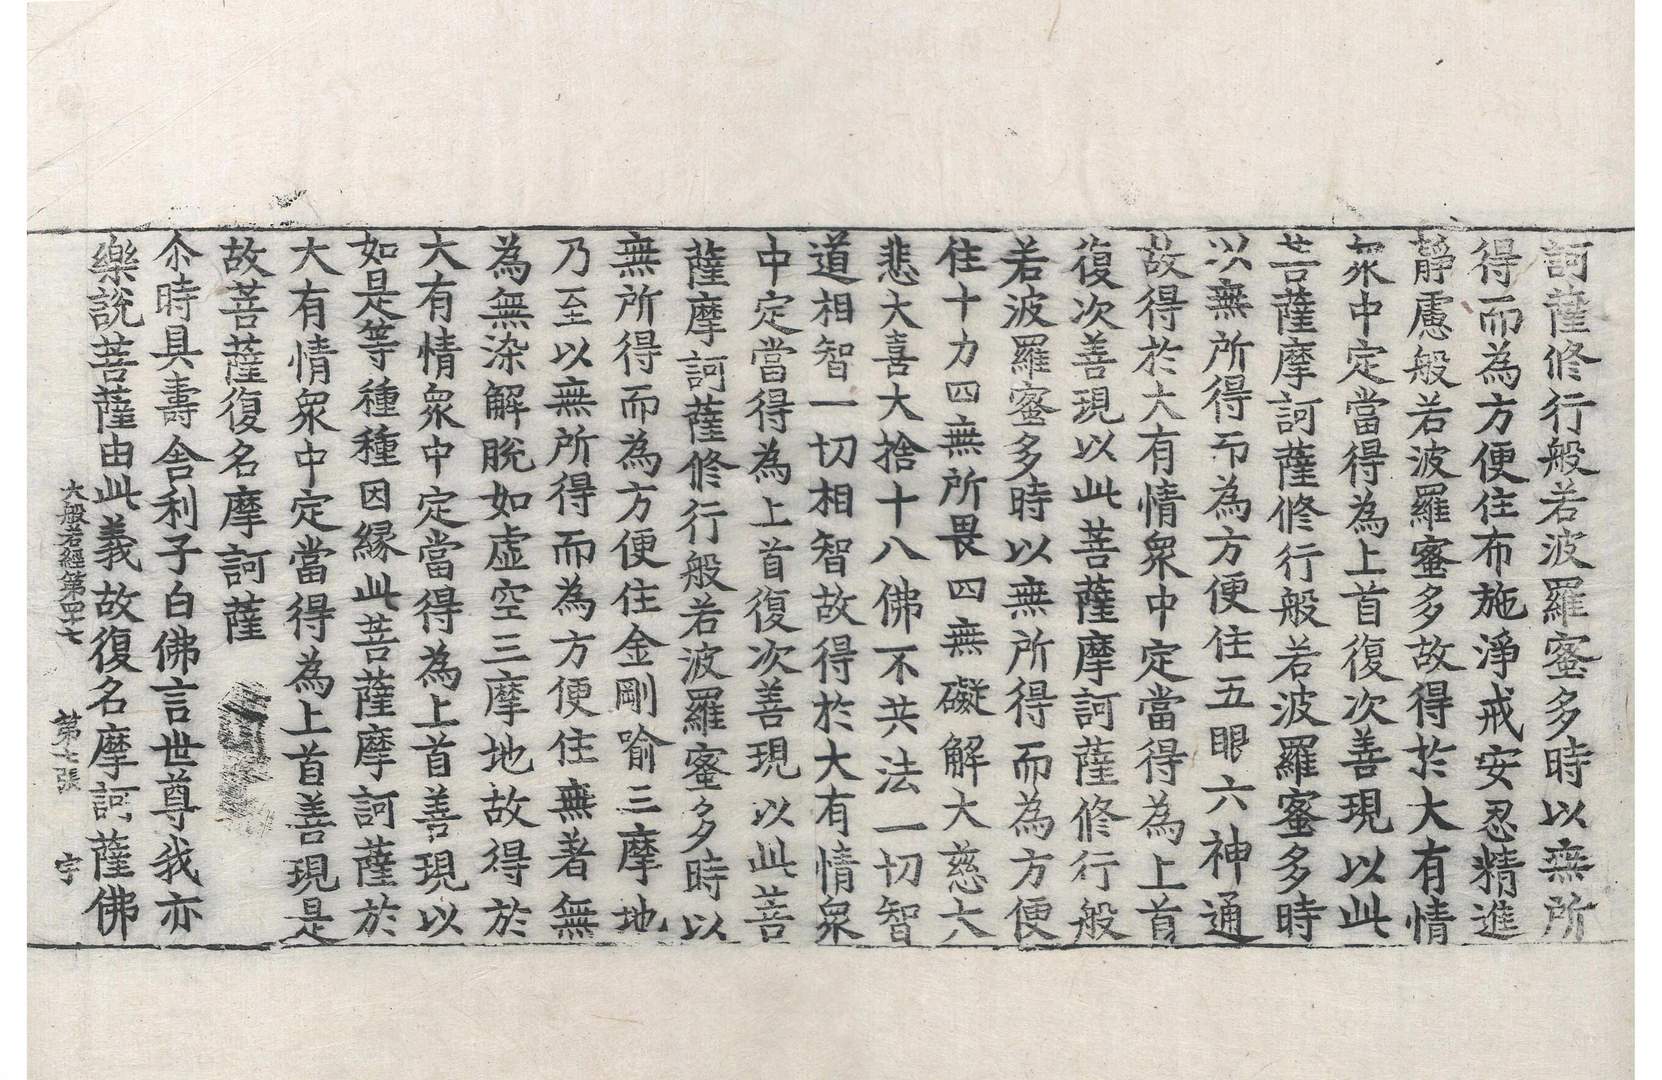 訶薩修行般若波羅蜜多時以無所
得而為方便住布施淨戒安忍精進
靜慮般若波羅蜜多故得於大有情
衆中定當得為上首復次善現以此
菩薩摩訶薩修行般若波羅蜜多時
以無所得而為方便住五眼六神通
故得於大有情衆中定當得為上首
復次善現以此菩薩摩訶薩修行般
若波羅蜜多時以無所得而為方便
住十力四無所畏四無礙解大慈大
悲大喜大捨十八佛不共法一切智
道相智一切相智故得於大有情衆
中定當得為上首復次善現以此菩
薩摩訶薩修行般若波羅蜜多時以
無所得而為方便住金剛喻三摩地
乃至以無所得而為方便住無著無
為無染解脫如虛空三摩地故得於
大有情衆中定當得為上首善現以
如是等種種因緣此菩薩摩訶薩於
大有情衆中定當得為上首善現是
故菩薩復名摩訶薩
尒時具壽舍利子白佛言世尊我亦
樂說菩薩由此義故復名摩訶薩佛
大般若經第四十七 第七張 宇